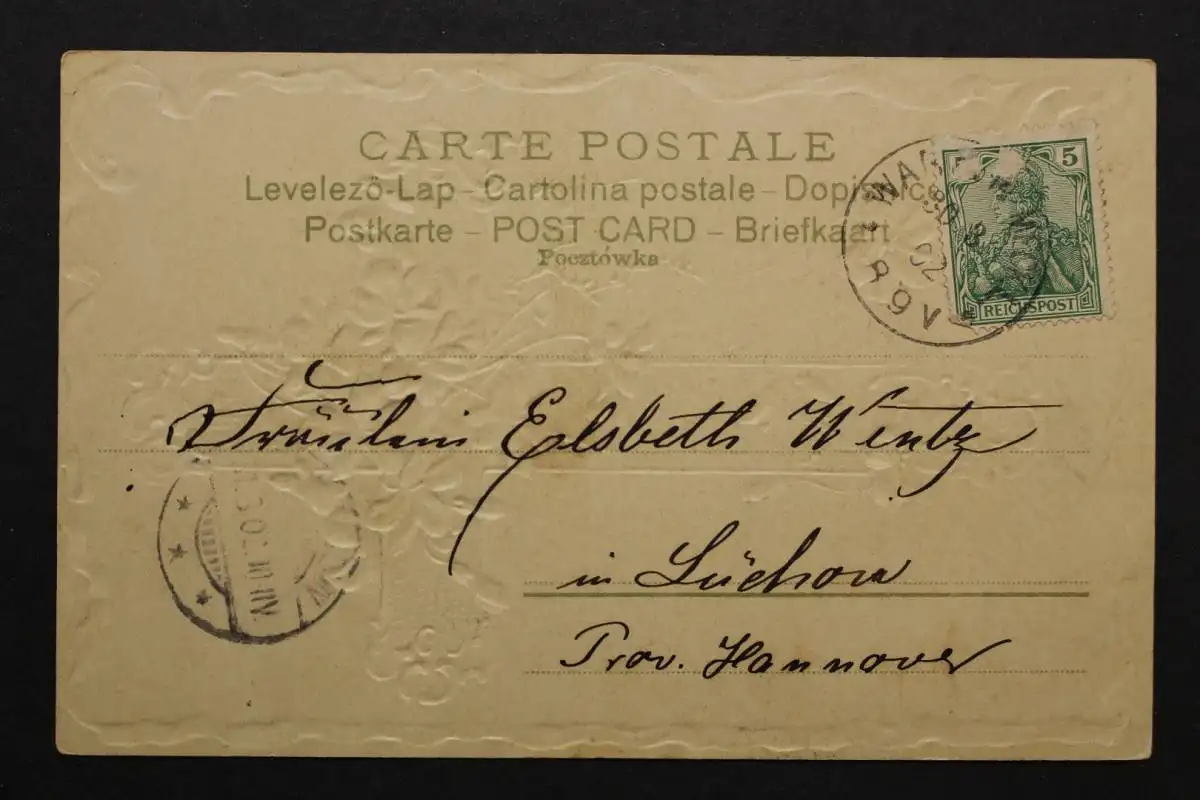 CARTE POSTALE
Levelező-Lap – Cartolina postale – Dopisnice
Postkarte – POST CARD – Briefkaart
Pocztówka
5
REICHSPOST
30 3
02
6 V
Fräulein Elsbeth Wentz
in Lüchow
Prov. Hannover